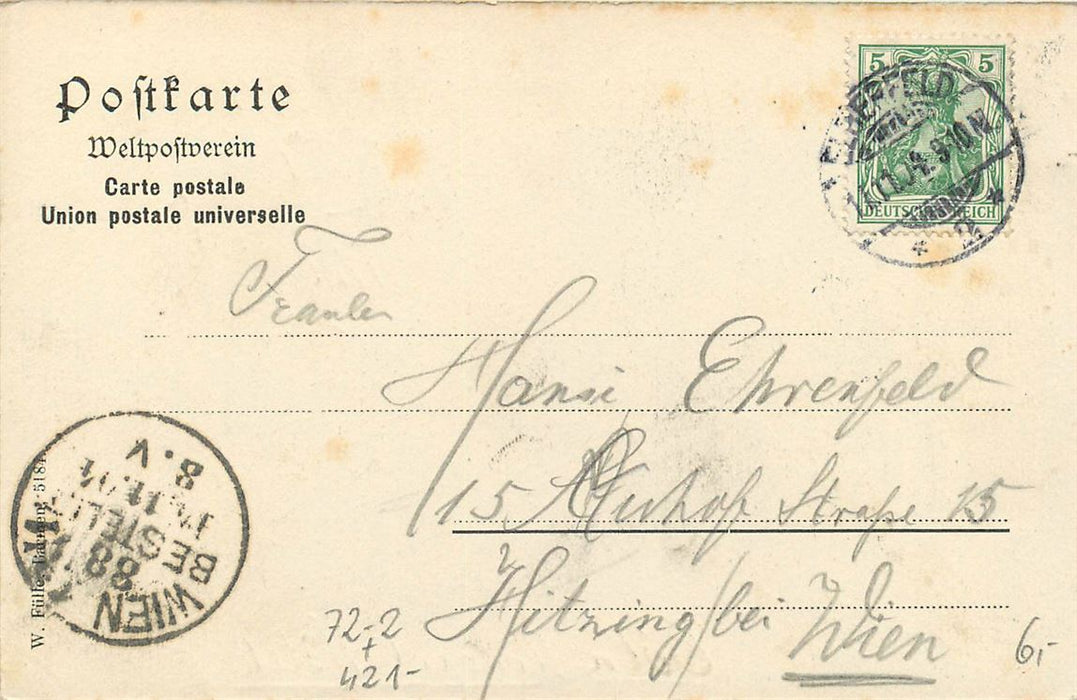 Postkarte
Weltpostverein
Carte postale
Union postale universelle
5 5
DEUTSCHES REICH
ELBERFELD
.11.04. 9-10 N
* 2 *
Fräulein
Hansi Ehrenfeld
15 Auhof Straße 15
Hitzing bei Wien
WIEN
88
BESTELLT
11.04
8.V
W. Fülle, Barmen 5184
72-2
+
421-
6,-